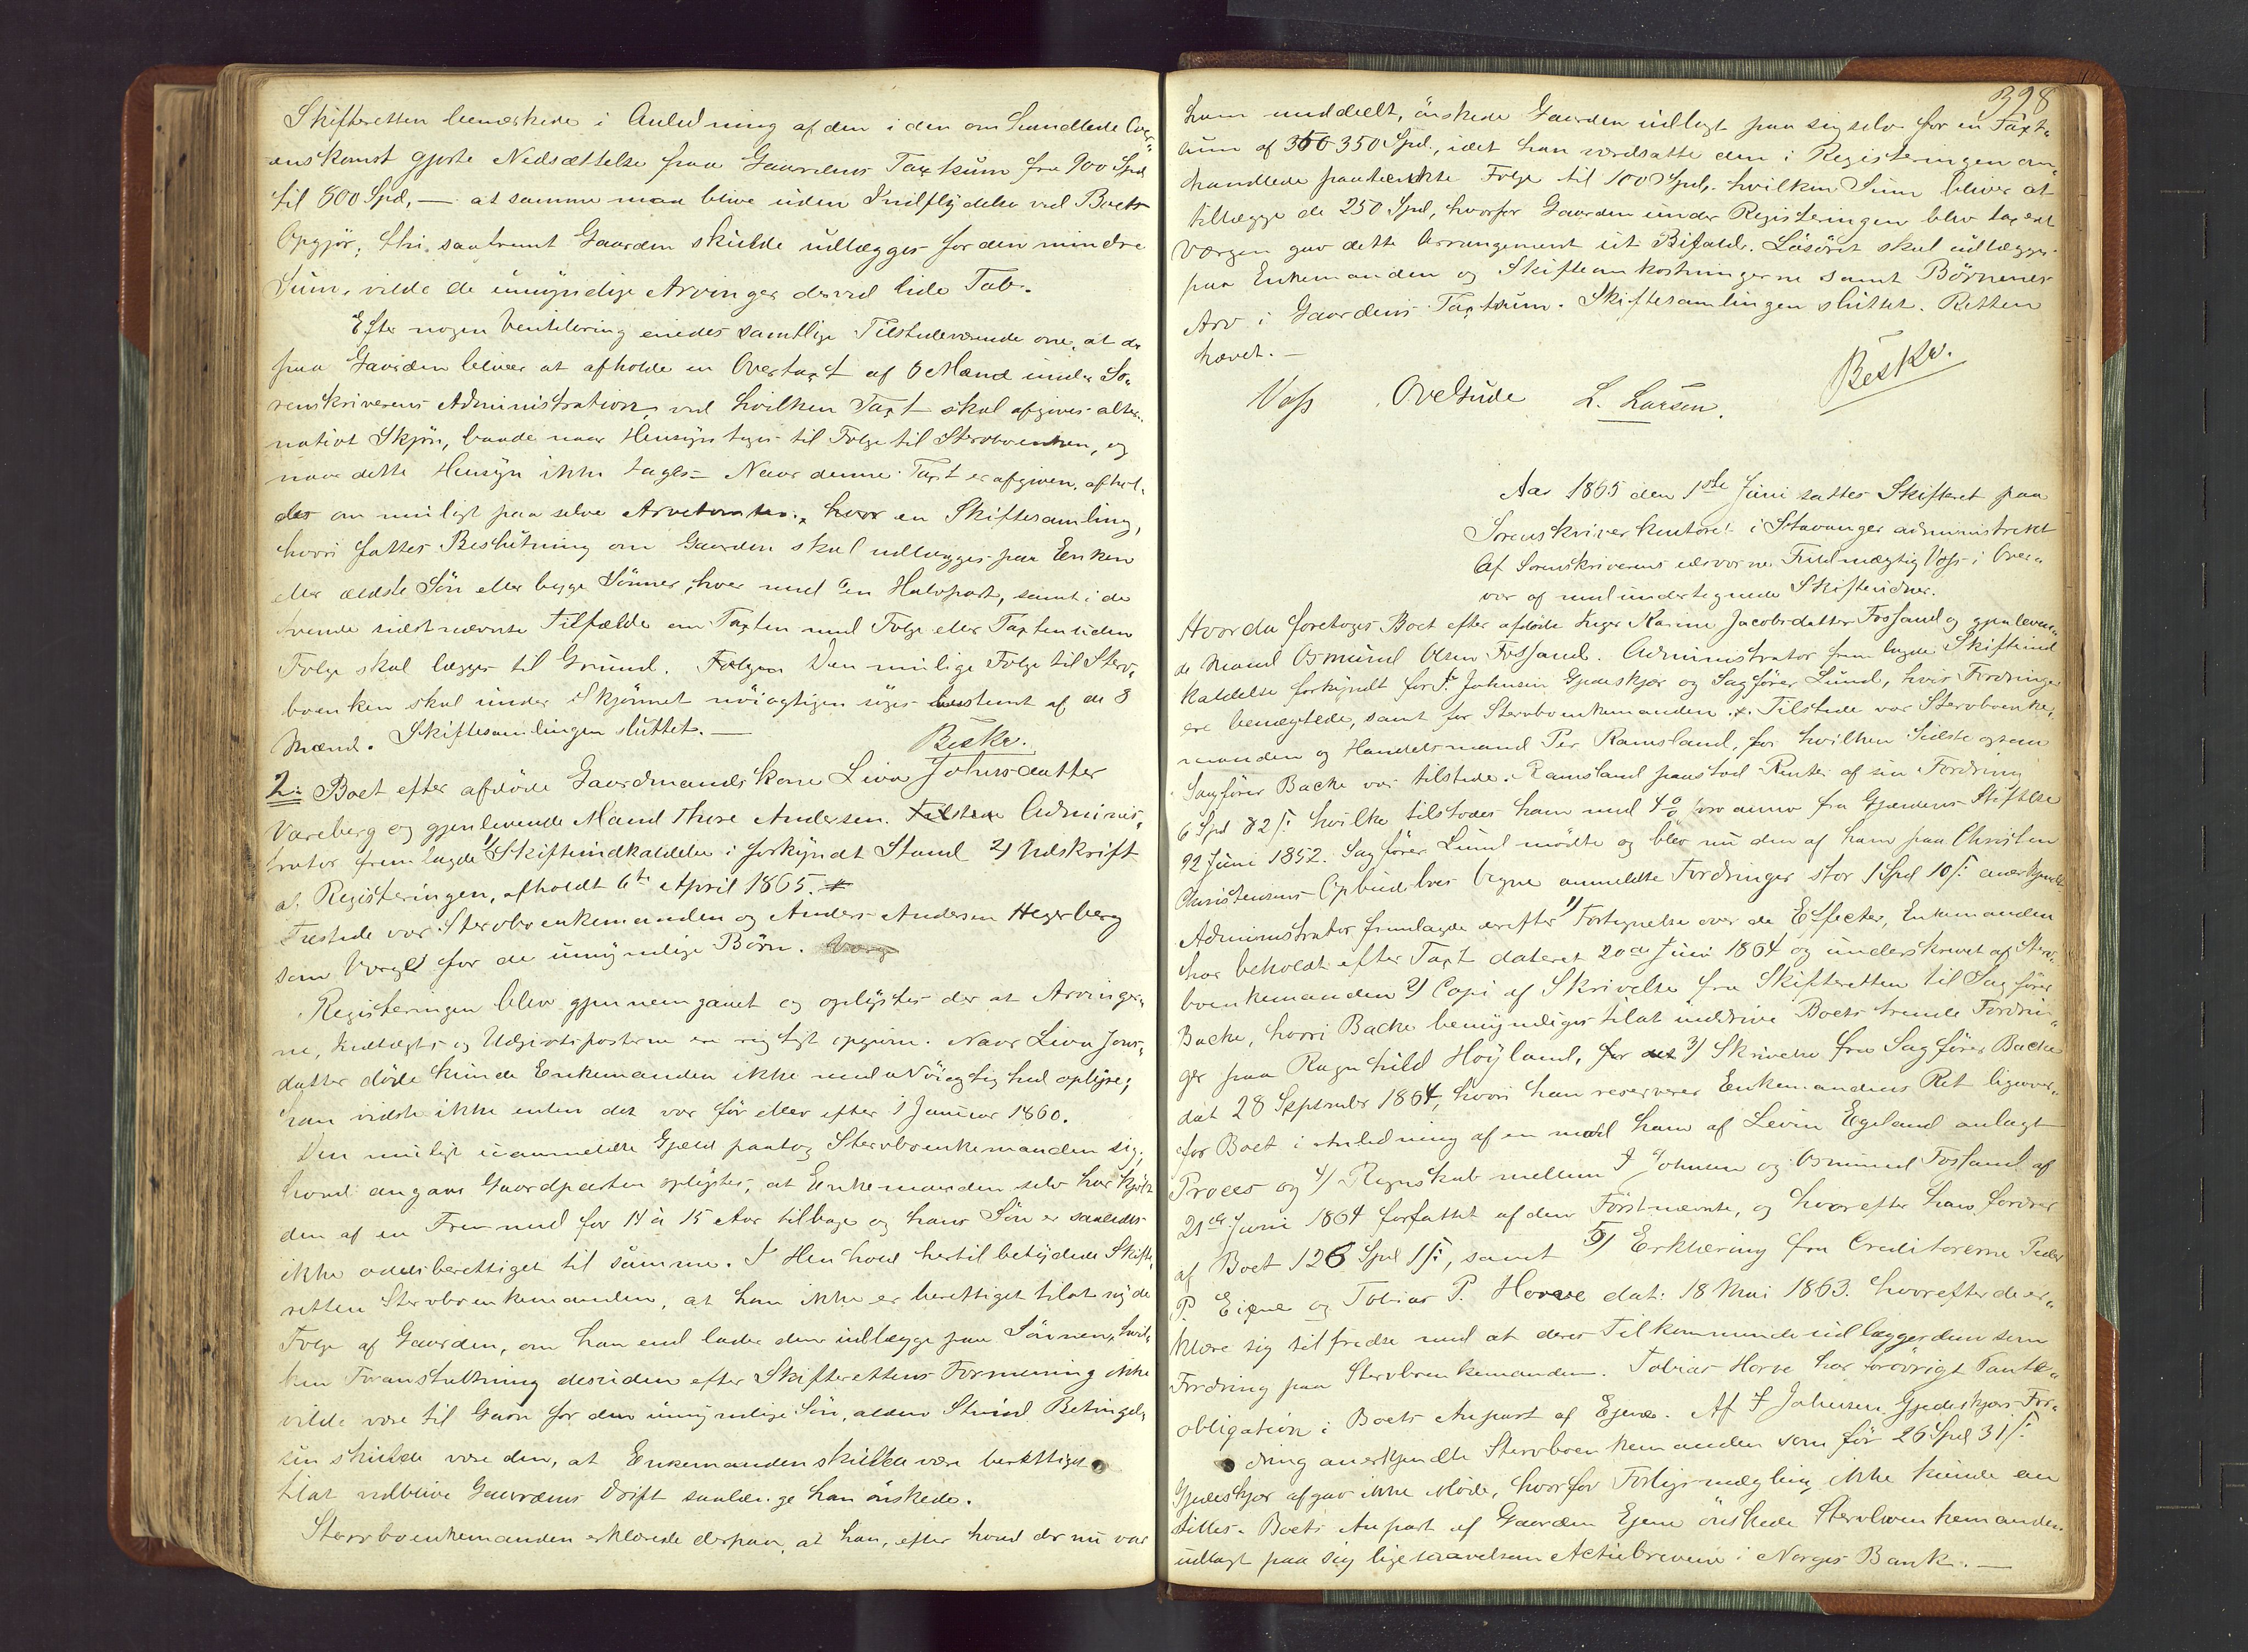 Skifteretten bemærkede i Anledning af den i den om handlede Over„
enskomst gjorte Nedsættelse paa Gaardens Taxtsum fra 900 Spd
til 800 Spd, — at samme maa blive uden Indflydelse ved Boets
Opgjör; thi saafremt Gaarden skulde udlægges for den mindre
Sum, vilde de umyndige Arvinger derved lide Tab.
Efter nogen Ventilering enedes samtlige Tilstedeværende om, at der
paa Gaarden bliver at afholde en Overtaxt af 6 Mænd under So„
renskriverens Administration, ved hvilken Taxt skal afgives alter„
nativt Skjön, baade naar Hensyn tages til Folge til Sterboenken, og
naar dette Hensyn ikke tages. Naar denne Taxt er afgiven, afhol„
des om muligt paa selve Arvetomten, hvor en Skiftesamling,
hvori fattes Beslutning om Gaarden skal udlægges paa Enken
eller ældste Sön eller begge Sönner, hver med en Halvpart, samt i de
tvende sidstnævnte Tilfælde om Taxten med Folge eller Taxten uden
Folge skal lægges til Grund. Folgen Den mulige Folge til Sterv„
boenken skal under Skjönnet nöiagtigen siges bestemt af de 8
Mænd. Skiftesamlingen sluttet. —
Beskr.
2: Boet efter afdöde Gaardmandskone Liva Johnsdatter
Vareberg og gjenlevende Mand Thore Andersen. Tilstede Adminis„
trator fremlagde 1/ Skifteindkaldelse i forkyndt Stand 2/ Udskrift
af Registeringen, afholdt 6te April 1865. #
Tilstede var Stervboenkemanden og Anders Andersen Hegerberg
som Verge for de umyndige Börn. Værge
Registeringen blev gjennemgaaet og oplystes der at Arvinger„
ne, Indtægts og Udgiftsposterne ere rigtigt opgivne. Naar Liva Jons„
datter döde kunde Enkemanden ikke med Nöiagtighed oplyse;
han vidste ikke enten det var för eller efter 1 Januar 1860.
Den muligt uanmeldte Gjeld paatog Stervboenkemanden sig;
hvad angaar Gaardparten oplystes, at Enkemanden selv har kjöbt
den af en Fremmed for 14 à 15 Aar tilbage og hans Sön er saaledes
ikke odelsberettiget til samme. I Henhold hertil betydede Skifte„
retten Stervboenkemanden, at han ikke er berettiget til at nyde
Folge af Gaarden, om han end lader den udlægge paa Sönnen, hvil„
ken Foranstaltning desuden efter Skifterettens Formening ikke
vilde være til Gavn for den umyndige Sön, alden Stund Betingel„
sen skulde være den, at Enkemanden skulde være berettiget
til at vedblive Gaardens Drift saalænge han önskede.
Stervboenkemanden erklærede derpaa, at han, efter hvad der nu var
398
ham meddelt, önskede Gaarden udlagt paa sig selv for en Taxt„
sum af 350 350 Spd., idet han værdsatte den i Registeringen om„
handlede paatænkte Folge til 100 Spd, hvilken Sum bliver at
tillægge de 250 Spd, hvorfor Gaarden under Registeringen blev taxeret
Værgen gav dette Arrangement sit Bifald. Lösöret skal udlægges
paa Enkemanden og Skifteomkostningerne samt Börnenes
Arv i Gaardens Taxtsum. Skiftesamlingen sluttet. Retten
hævet. —
Beskr.
Voss Ovelsude L. Larsen.
Aar 1865 den 1ste Juni sattes Skifteret paa
Sorenskriverkontoret i Stavanger administreret
af Sorenskriverens edsvorne Fuldmægtig Voss i Over„
vær af medundertegnede Skiftevidner.
Hvorda foretoges Boet efter afdöde Inger Karine Jacobsdatter Fossand og gjenleven„
de Mand Osmund Olsen Fossand. Administrator fremlagde Skifteind
kaldelse forkyndt for J. Johnsen Gjedeskjær og Sagförer Lund, hvis Fordringer
ere benægtede, samt for Stervboenkemanden. Tilstede var Stervboenke„
manden og Handelsmand Per Ramsland, for hvilken Sidste ogsaa
Sagförer Backe var tilstede. Ramsland paastod Renter af sin Fordring
6 Spd 82 ß: hvilke tilstodes ham med 4 % pro anno fra Gjældens Stiftelse
22 Juni 1852. Sagförer Lund mödte og blev nu den af ham paa Christen
Christensens Opbudsboes Vegne anmeldte Fordringer stor 1 Spd 10 ß: anerkjendt
Administrator fremlagde derefter 1/ Fortegnelse over de Effecter, Enkemanden
har beholdt efter Taxt dateret 20de Juni 1864 og underskrevet af Sterv„
boenkemanden 2/ Copi af Skrivelse fra Skifteretten til Sagförer
Backe, hvori Backe bemyndiges til at inddrive Boets trende Fordrin„
ger paa Ragnhild Höyland, for det 3/ Skrivelse fra Sagförer Backe
dat 28 September 1864, hvori han reserverer Enkemandens Ret ligeover„
for Boet i Anledning af en mod ham af Levin Egeland anlagt
Proces og 4/ Regnskab mellem J Johnsen og Osmund Fossand af
21de Juni 1864 forfattet af den Förstnævnte, og hvorefter han fordrer
af Boet 126 Spd 1 ß:, samt 5/ Erklæring fra Creditorerne Peder
P. Eigne og Tobias P. Horve dat: 18 Mai 1863. hvorefter de er„
klære sig tilfredse med at deres Tilkommende udlægges dem som
Fordring paa Stervboenkemanden. Tobias Horve har forövrigt Pante„
obligation i Boets Anpart af Ejene. Af J Johnsen Gjedeskjærs For„
dring anerkjendte Stervboenkemanden som för 26 Spd 31 ß:
Gjedeskjær afgav ikke Möde, hvorfor Forligsmægling ikke kunde an„
stilles. Boets Anpart af Gaarden Ejene önskede Stervboenkemanden
udlagt paa sig ligesaavelsom Actiebrevene i Norges Bank. —